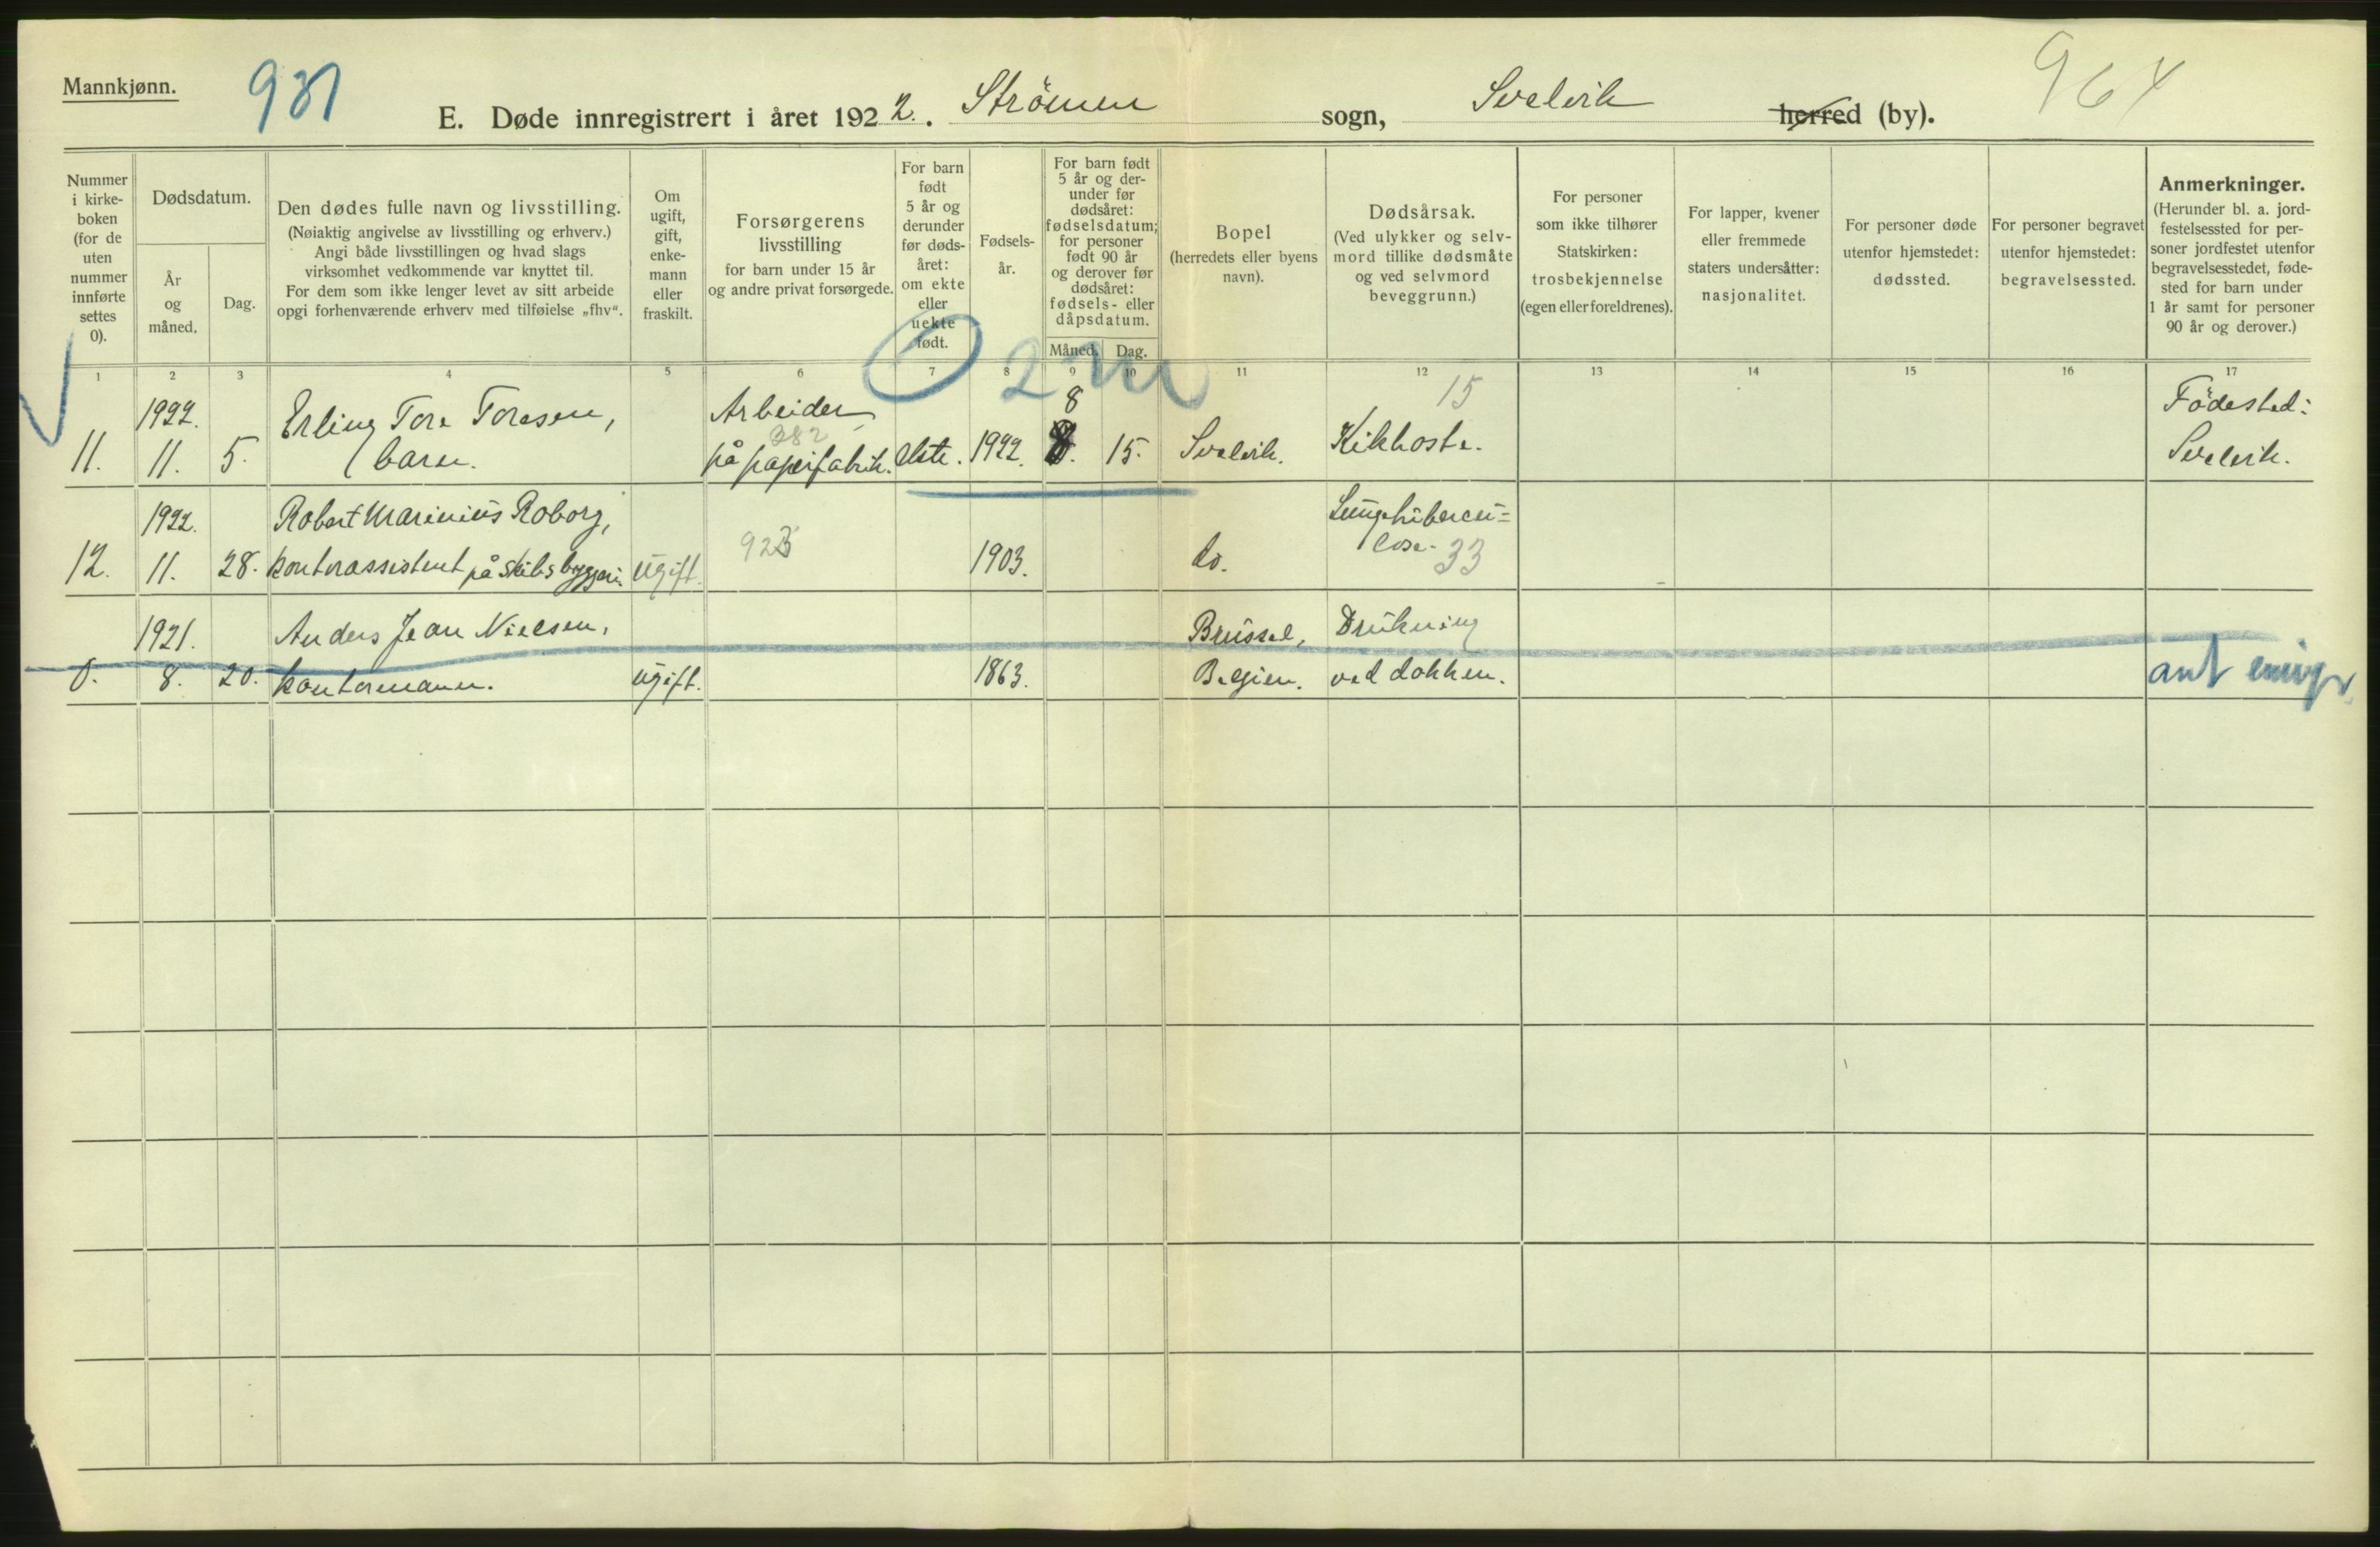 Mannkjønn.
931
964
E. Døde innregistrert i året 1922. Strömm sogn, Svelvik herred (by).
Nummer
i kirke-
boken
(for de
uten
nummer
innførte
settes
0).
Dødsdatum.
År
og
måned.
Dag.
Den dødes fulle navn og livsstilling.
(Nøiaktig angivelse av livsstilling og erhverv.)
Angi både livsstillingen og hvad slags
virksomhet vedkommende var knyttet til.
For dem som ikke lenger levet av sitt arbeide
opgi forhenværende erhverv med tilføielse „fhv“.
Om
ugift,
gift,
enke-
mann
eller
fraskilt.
Forsørgerens
livsstilling
for barn under 15 år
og andre privat forsørgede.
For barn
født
5 år og
derunder
før døds-
året:
om ekte
eller
uekte
født.
Fødsels-
år.
For barn født
5 år og der-
under før
dødsåret:
fødselsdatum;
for personer
født 90 år
og derover før
dødsåret:
fødsels- eller
dåpsdatum.
Måned. Dag.
Bopel
(herredets eller byens
navn).
Dødsårsak.
(Ved ulykker og selv-
mord tillike dødsmåte
og ved selvmord
beveggrunn.)
For personer
som ikke tilhører
Statskirken:
trosbekjennelse
(egen eller foreldrenes).
For lapper, kvener
eller fremmede
staters undersåtter:
nasjonalitet.
For personer døde
utenfor hjemstedet:
dødssted.
For personer begravet
utenfor hjemstedet:
begravelsessted.
Anmerkninger.
(Herunder bl. a. jord-
festelsessted for per-
soner jordfestet utenfor
begravelsesstedet, føde-
sted for barn under
1 år samt for personer
90 år og derover.)
1 2 3 4 5 6 7 8 9 10 11 12 13 14 15 16 17
2 m
1922. Erling Tore Toresen, Arbeider 8 15 Födested:
11. 11. 5. barn. på papirfabrik. 282 ekte. 1922. 8. 15. Svelvik. Kikhoste. Svelvik.
1922. Robert Marinius Roborg, Lungetubercu=
12. 11. 28. kontorassistent på skibsbyggeri. ugift. 923 1903. do. lose. 33
1921. Anders Jean Nielsen, Brüssel, Drukning
0. 8. 20. kontormann. ugift. 1863. Belgien. ved dokken. ant emigr.